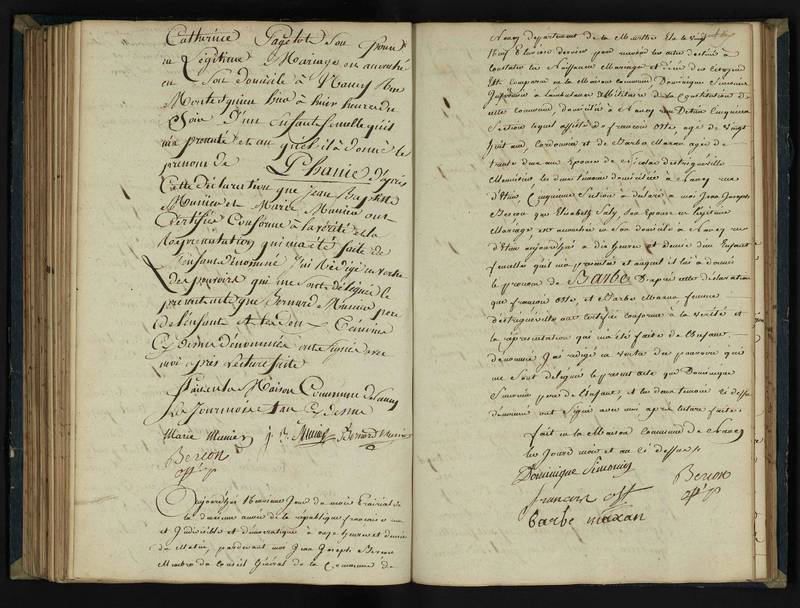 Catherine Pagelot Son Epouse
en Légitime Mariage est accouchée
en Son domicile à Nancy Rue
Montesquieu hier à huit heures du
Soir D'un Enfant femelle qu'il
m'a presenté et auquel il à donné le
prenom de Phanie D'après
Cette déclaration que Jean Baptiste
Munier et Marie Munier ont
Certifiée Conforme à la vérité et la
Représentation qui m'a été faite de
l'enfant dénommé J'ai Rédigé en vertu
des pouvoirs qui me sont délégués le
present acte que Bernard Munier pere
de l'enfant et les deux Témoins
Cy dessus dénommés ont signé avec
moi après lecture faite
Fait en la Maison Commune de Nancy
Les Jour mois et an Cy dessus
Marie Munier J. B. Munier Bernard Munier
Berson
off. p.
Aujourd'hui 16 Jour du mois Prairial de
la deuxieme année de la république francaise une
et Indivisible et démocratique à onze heures et demie
du Matin, pardevant moi Jean Joseph Berson
Membre du Conseil Général de la Commune de
Nancy departement de la Meurthe Elu le vingt
dernier pour recevoir les actes destinés à
constater les Naissances Mariages et décès des Citoyens
Est Comparu en la Maison commune Dominique Simonin
à l'ambulance Militaire de la Constitution de
cette commune, domicilié à Nancy rue Cinquieme
Section lequel assisté de francois Otte, agé de vingt
huit ans, Cordonnier et de Barbe Maxan agée de
trente deux ans Epouse de Nicolas Destrigueville
les deux temoins domiciliés à Nancy rue
Cinquieme Section à déclaré à moi Jean Joseph
Berson que Elisabeth Saly Son épouse en legitime
Mariage est accouchée en Son domicile à Nancy rue
aujourd'hui à dix heures et demie d'un Enfant
femelle qu'il m'a presenté et auquel il à donné
le prenom de Barbe D'après cette déclaration
que francois Otte, et Barbe Maxan femme
Destrigueville ont certifiée conforme à la vérité et
la représentation qui m'a été faite de l'enfant
denommé J'ai redigé en vertu des pouvoirs qui
me Sont délégués le present acte que Dominique
Simonin pere de l'enfant, et les deux temoins ci dessus
denommés ont Signé avec moi après lecture faite.
fait en la Maison commune de Nancy
les Jour mois et an ci dessus
Dominique Simonin Berson
francois off. p.
barbe maxan